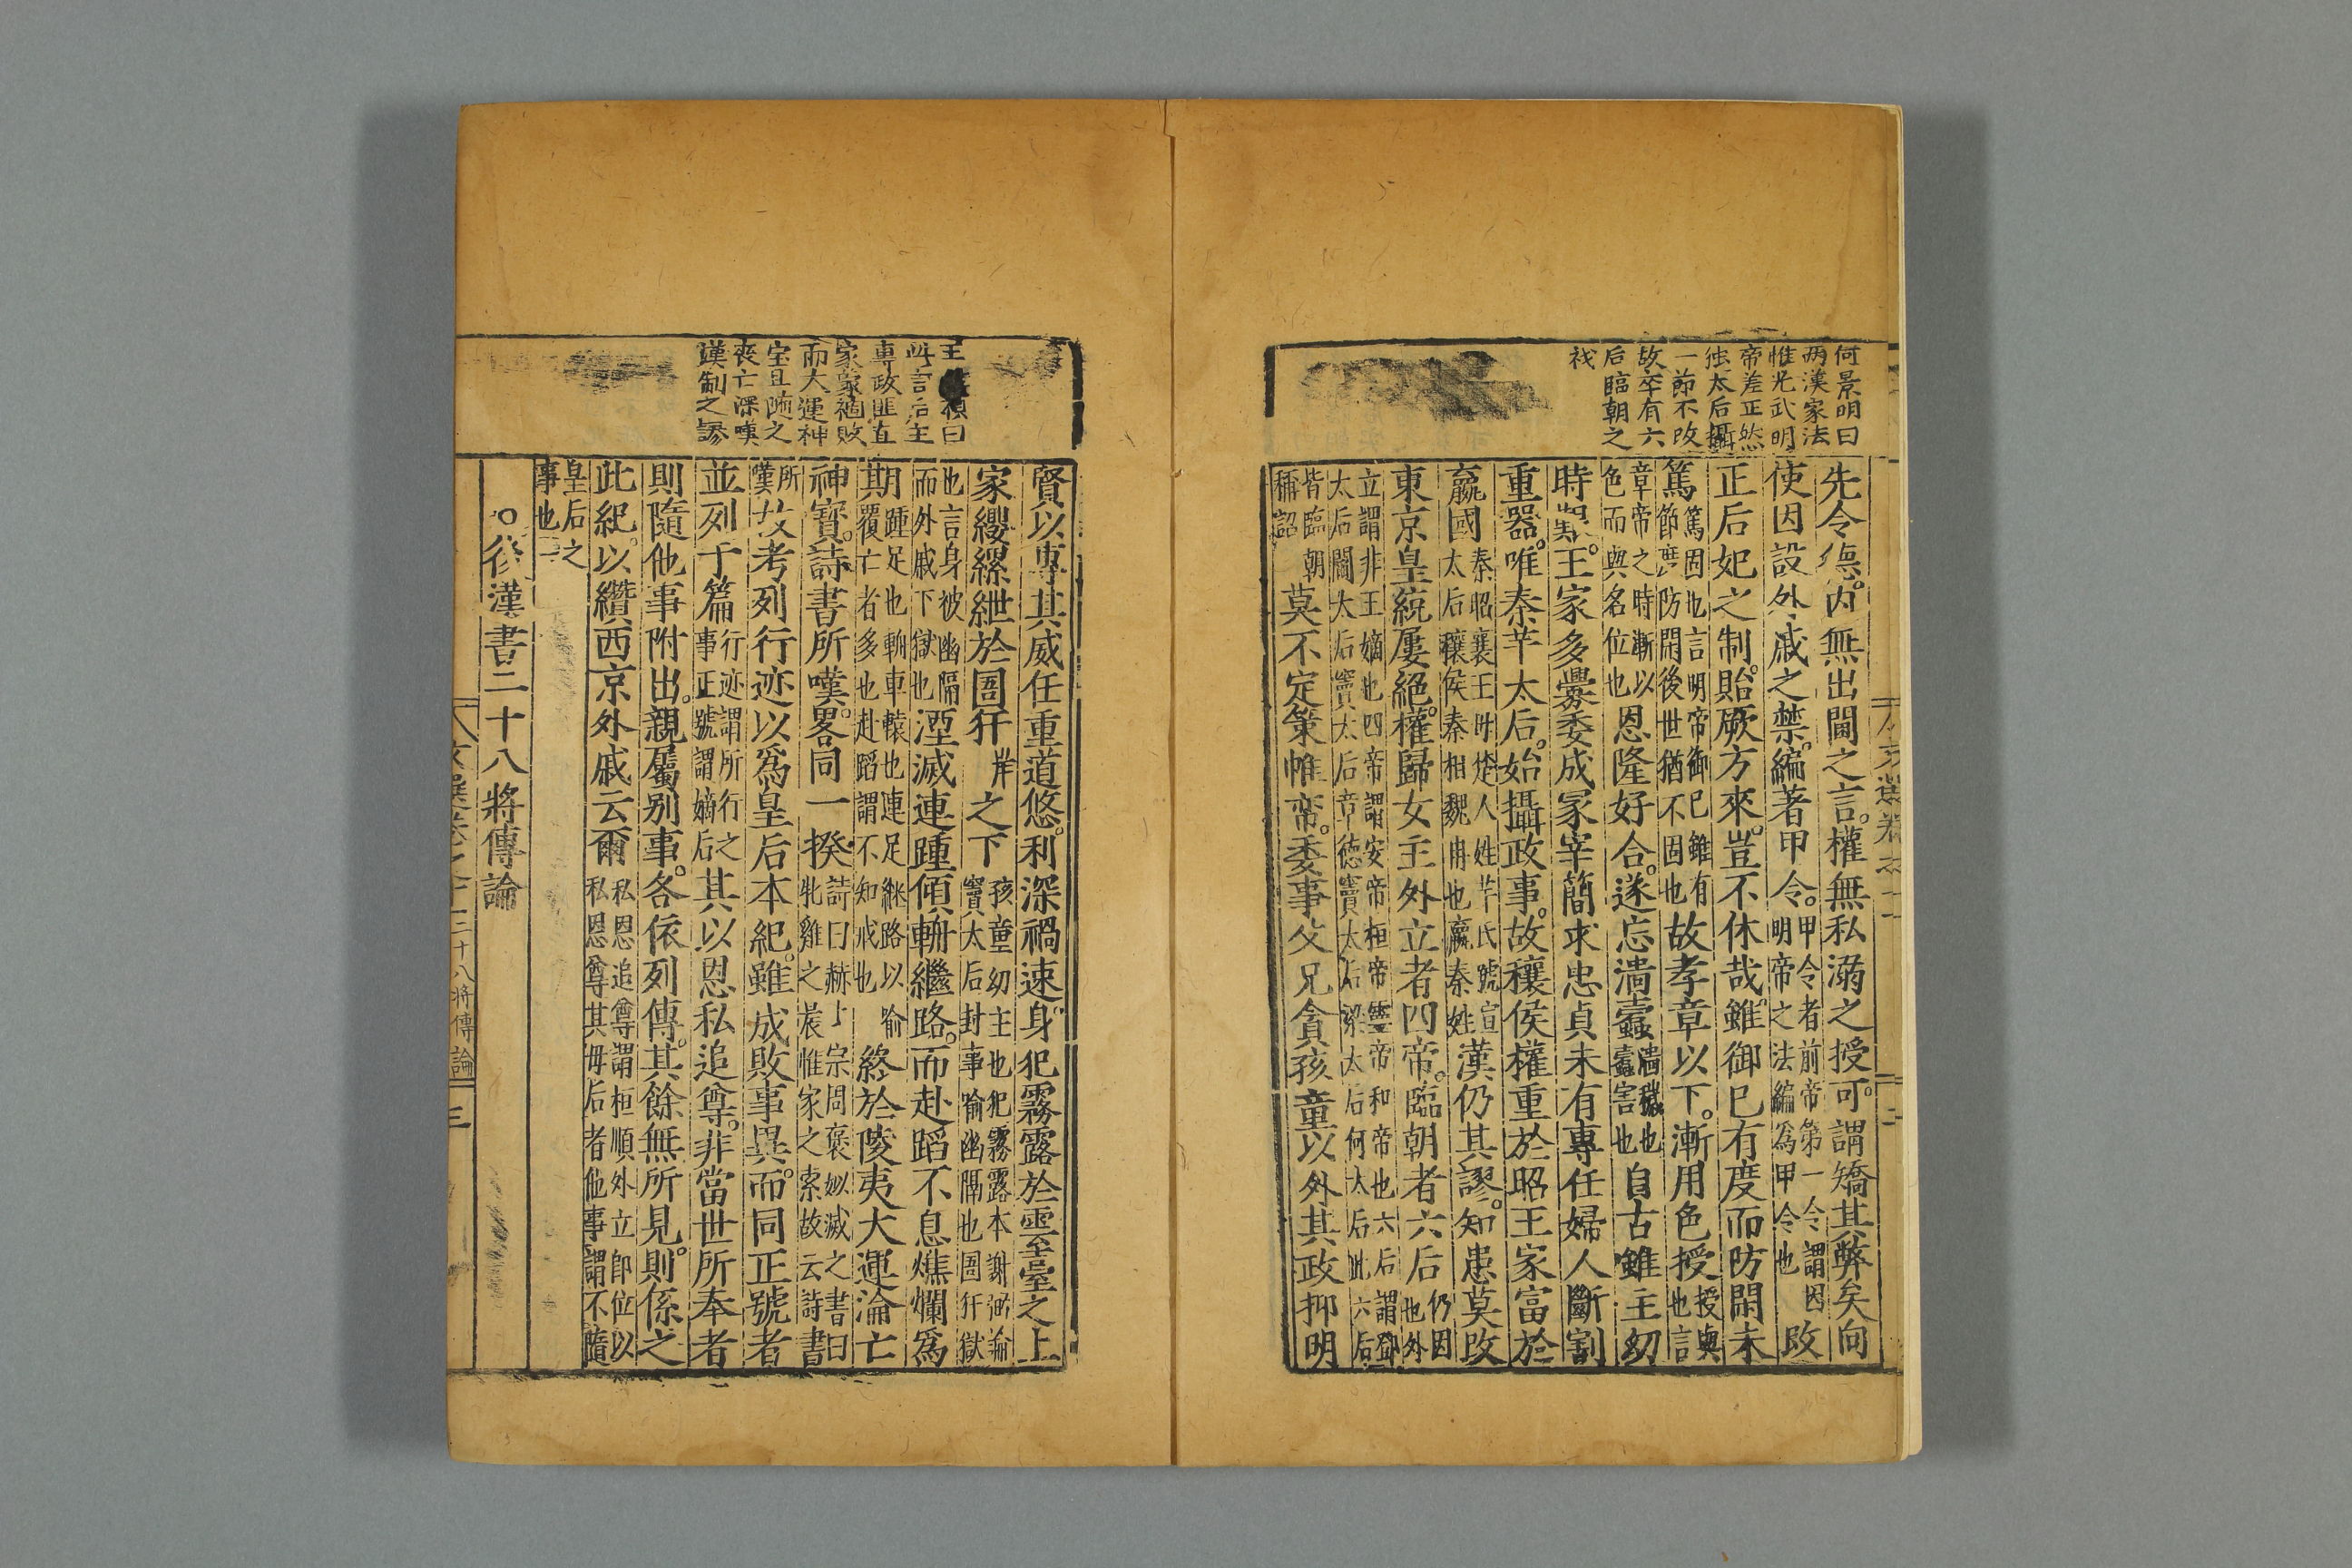 何景明曰
两漢家法
惟光武明
帝差正然
独太后攝
一節不改
故卒有六
后臨朝之
先令德内無出閫之言權無私溺之授可謂矯其弊矣向
使因設外戚之禁編著甲令甲令者前帝第一令謂因明帝之法編為甲令也改
正后妃之制貽厥方來豈不休哉雖御已有度而防閑未
篤篤固也言明帝御已雖有節度防閑後世猶不固也故孝章以下漸用色授授與也言
章帝之時漸以色而與名位也恩隆好合遂忘淄蠹淄穢也蠹害也自古雖主幼
時艱王家多釁委成冢宰簡求忠貞未有專任婦人斷割
重器唯秦芊太后始攝政事故穰侯權重於昭王家富於
嬴國秦昭襄王时楚人姓芊氏號宣太后穰侯秦相魏冉也嬴秦姓漢仍其謬知患莫改
東京皇統屢絕權歸女主外立者四帝臨朝者六后仍因也外
立謂非王嫡也四帝謂安帝桓帝靈帝和帝也六后謂鄧太后閻太后竇太后章徳竇太后梁太后何太后此六后
皆臨朝稱詔莫不定策帷帟委事父兄貪孩童以外其政抑明
賢以專其威任重道悠利深禍速身犯霧露於雲臺之上
家纓縲紲於圄犴岸之下孩童幼主也犯霧露本謝弼論竇太后封事喻幽隔也圄犴獄
也言身被幽隔而外戚下獄也湮滅連踵傾輈繼路而赴蹈不息燋爛爲
期踵足也輈車轅也連足継路以喻覆亡者多也赴蹈謂不知戒也終於陵夷大運淪亡
神寳詩書所嘆畧同一揆詩曰赫赫宗周褒姒滅之書曰牝雞之晨惟家之索故云詩書
所嘆故考列行迹以爲皇后本紀雖成敗事異而同正號者
並列于篇行迹謂所行之事正號謂嫡后其以恩私追尊非當世所奉者
則隨他事附出親屬别事各依列傳其餘無所見則係之
此紀以纘西京外戚云爾私恩追尊謂桓順外立即位以私恩尊其母后者他事謂不隨
皇后之事也
後漢書二十八將傳論
專政匪直
家蒙禍敗
而大運神
宝且随之
喪亡深嘆
漢制之謬
二十八將傳論 三